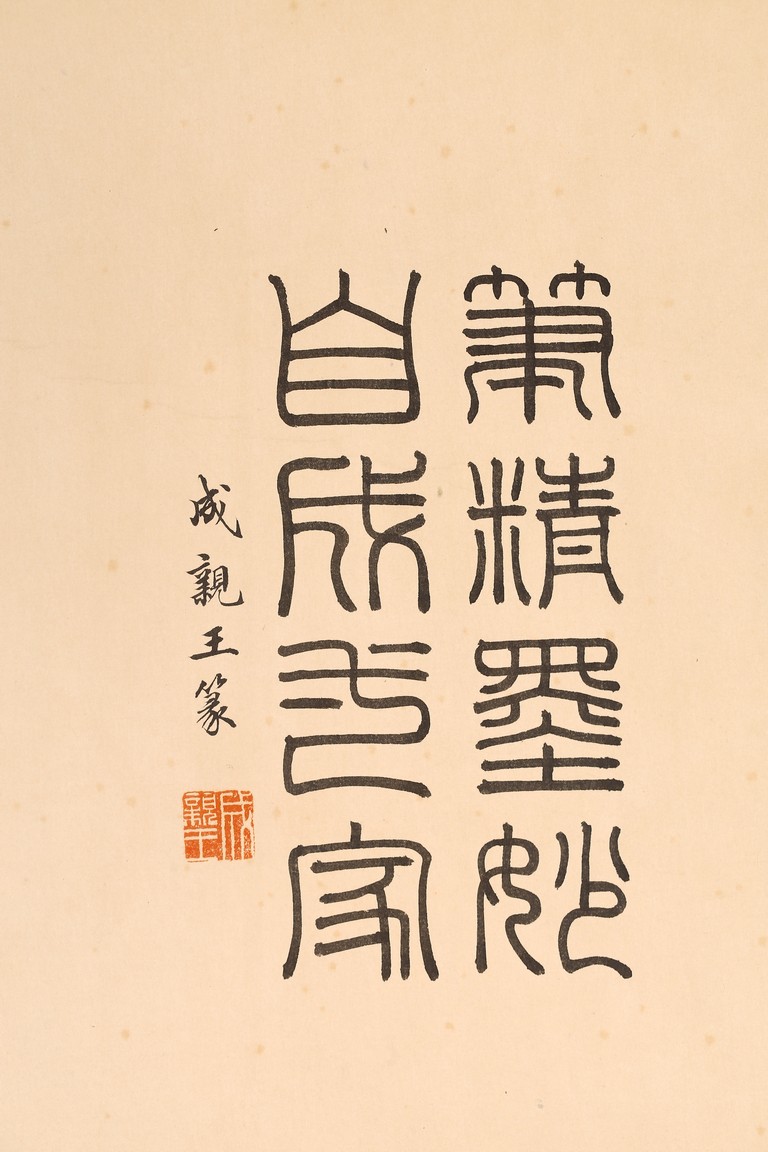 筆精墨妙
自成弌家
成親王篆
成親王